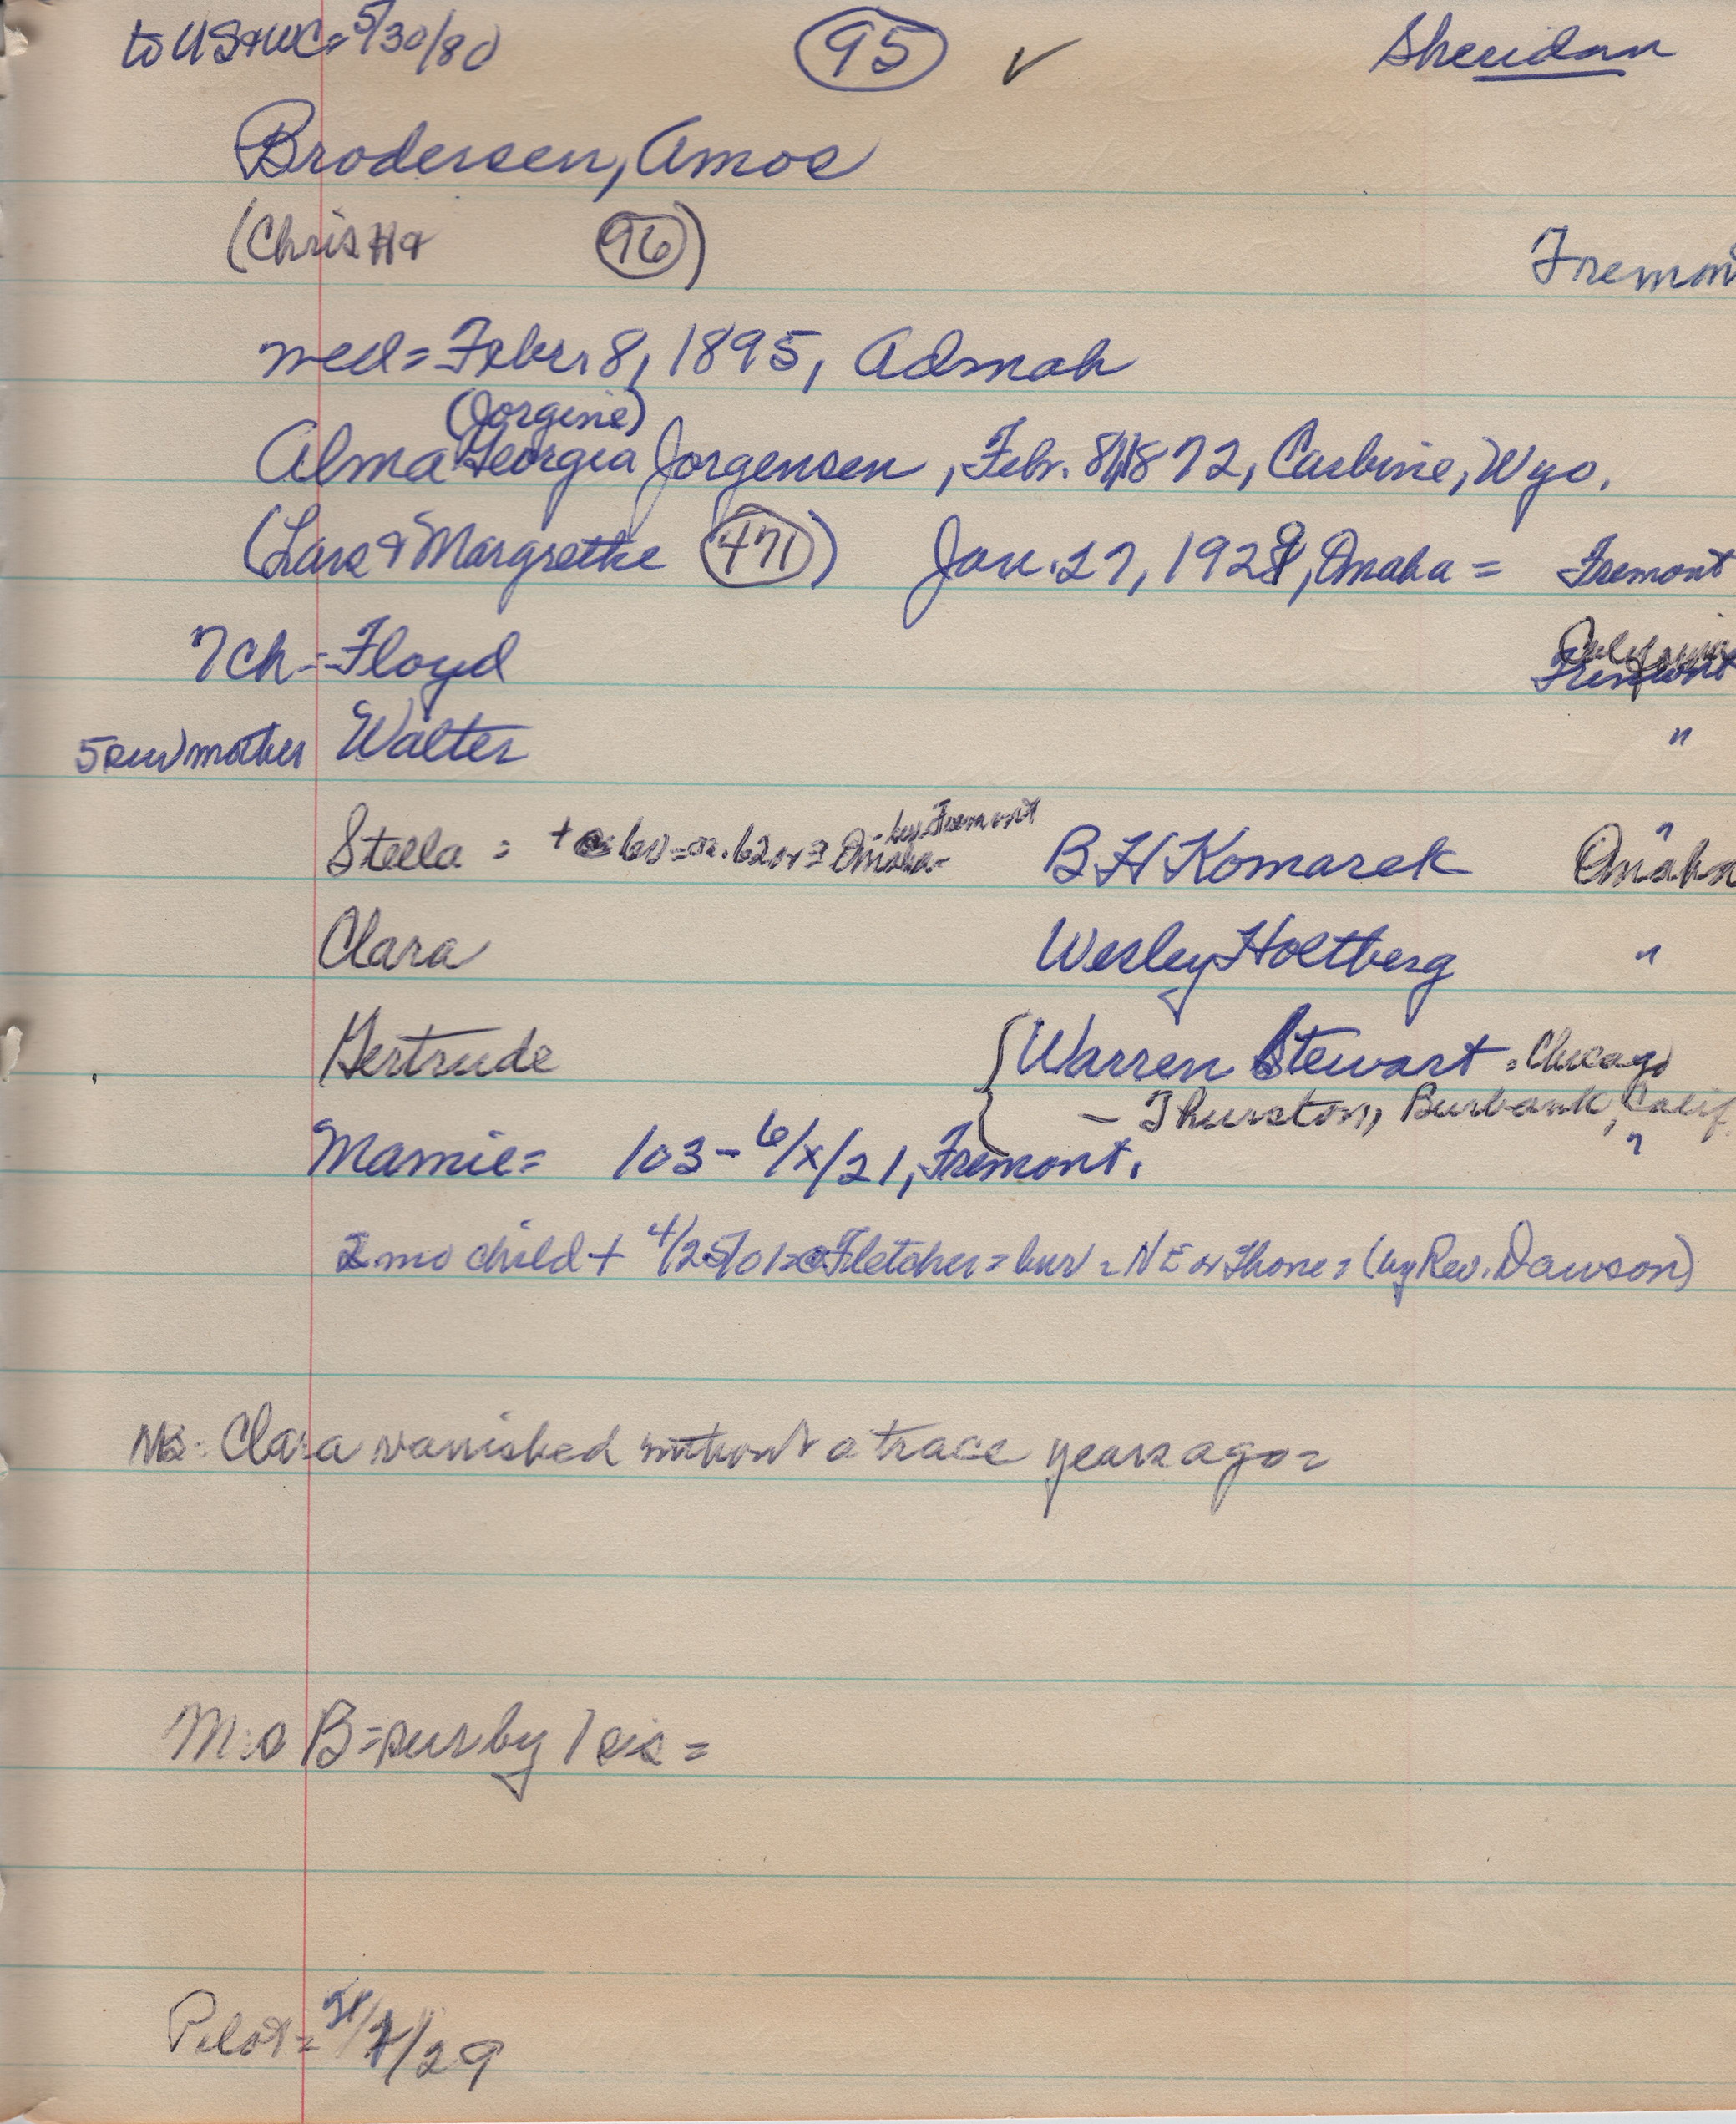 to US & WC = 5/30/80 95 ✓ Sheridan
Brodersen, Amos
(Chris # 96) Fremon
med = Febr. 8, 1895, Admah
(Jorgine)
Alma Georgia Jorgensen, Febr. 8, 1872, Carbine, Wyo.
(Lars & Margrethe 471) Jan. 27, 1929, Omaha = Fremont
7 ch = Floyd California Fremont
5 surv mother Walter "
by Fremont
Stella = + 60 = 62 or 3 Omaha - B H Komarek " Omaha
Clara Wesley Holtberg "
Gertrude { Warren Stewart = Chicago
- Thurston, Burbank, Calif
Mamie = 103 - 6/x/21, Fremont. "
2 mo child + 4/25/01 = Fletcher = bur = NE or Thone = (by Rev. Dawson)
NB. Clara vanished without a trace years ago =
Mrs B = sur by 1 sis =
Pilot = /29